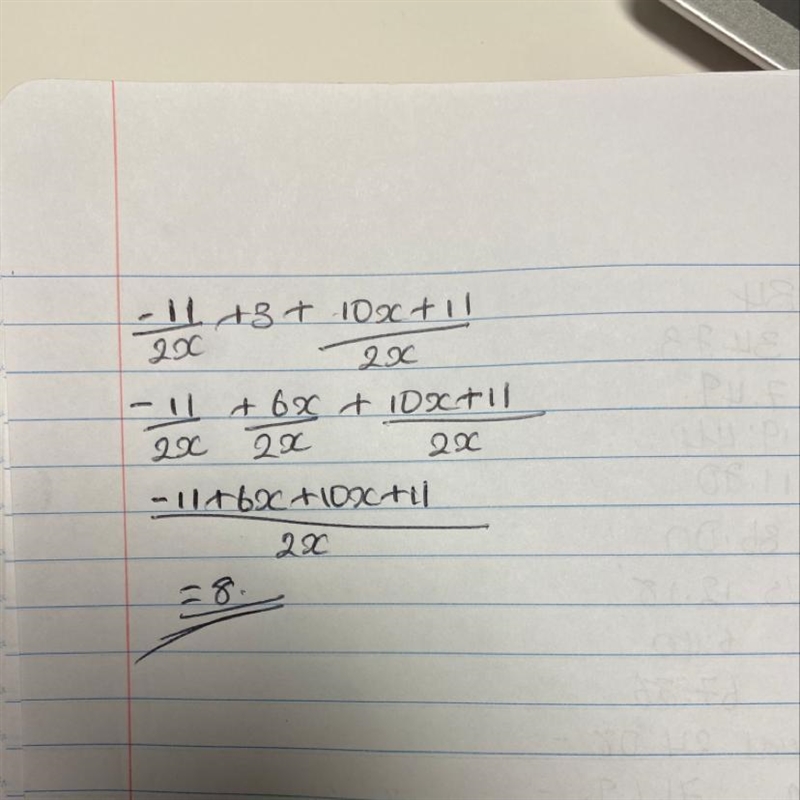 -11/2x +3 + 10x+11/2x
-11/2x + 6x/2x + 10x+11/2x
-11+6x+10x+11/2x
=8.